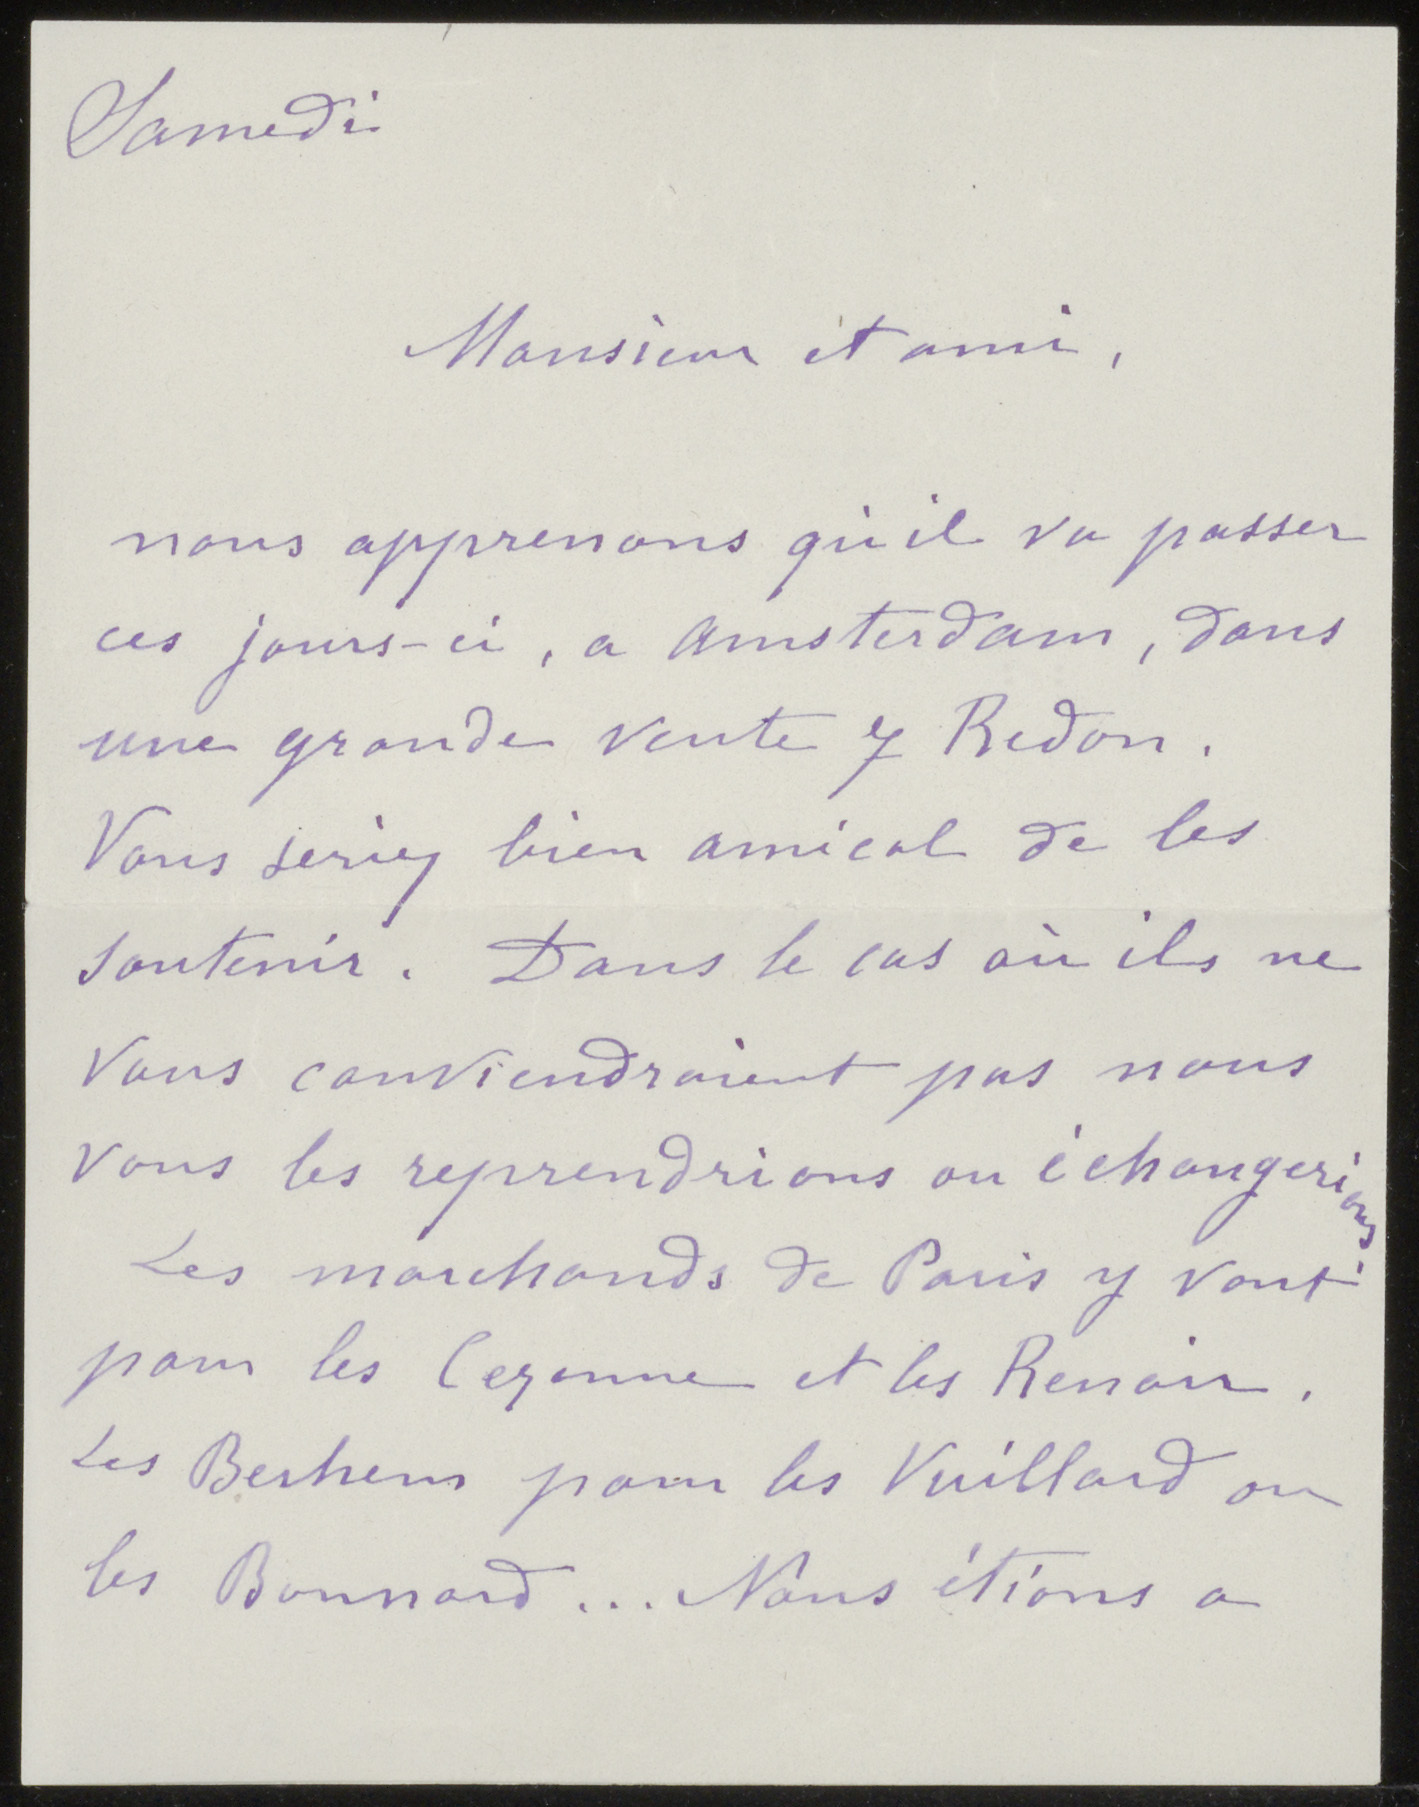 Samedi
Monsieur et ami,
nous apprenons qu'il va passer
ces jours-ci, a Amsterdam, dans
une grande vente 7 Redon.
Vous seriez bien amical de les
soutenir. Dans le cas où ils ne
vous conviendraient pas nous
vous les reprendrions ou échangerions.
Les marchands de Paris y vont
pour les Cezanne et les Renoir.
Les Berhem pour les Vuillard ou
les Bonnard... Nous étions a